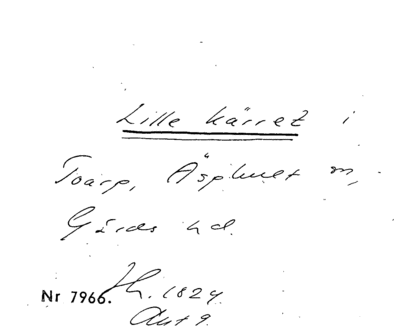 Lille kärret i
Toarp, Äsphult sn,
Gärds hd.
Nr 7966. Sk. 1824
Akt 9.